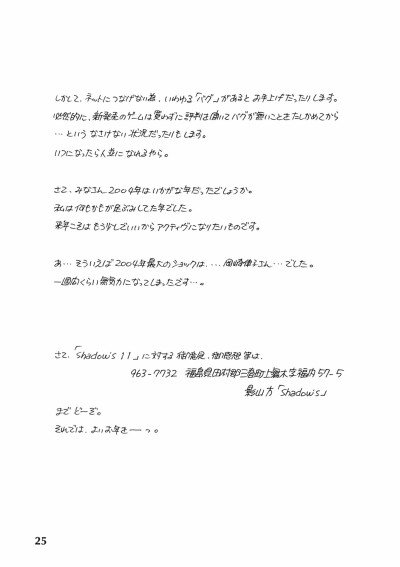 しかして、ネットにつなげない為、いわゆる「バグ」があるとお手上げだったりします。
必然的に、新発売のゲームは買わずに評判は聞いてバグが無いことをたしかめてから
…というなさけない状況だったりもします。
いつになったら人並になれるやら。
さて、みなさん2004年はいかがな年だったでしょうか。
私は何もかもが足ぶみしてた年でした。
来年こそはもう少しでいいからアクティヴになりたいものです。
あ…そういえば2004年最大のショックは、…岡崎律子さん…でした。
一週間くらい無気力になってしまったです…。
さて、「Shadowis 11」に対する御意見、御感想等は、
963-7732 福島県田村郡三春町上舞木字福内57-5
影山方「Shadowis」
までどーぞ。
それでは、よいお年をーーっ。
25